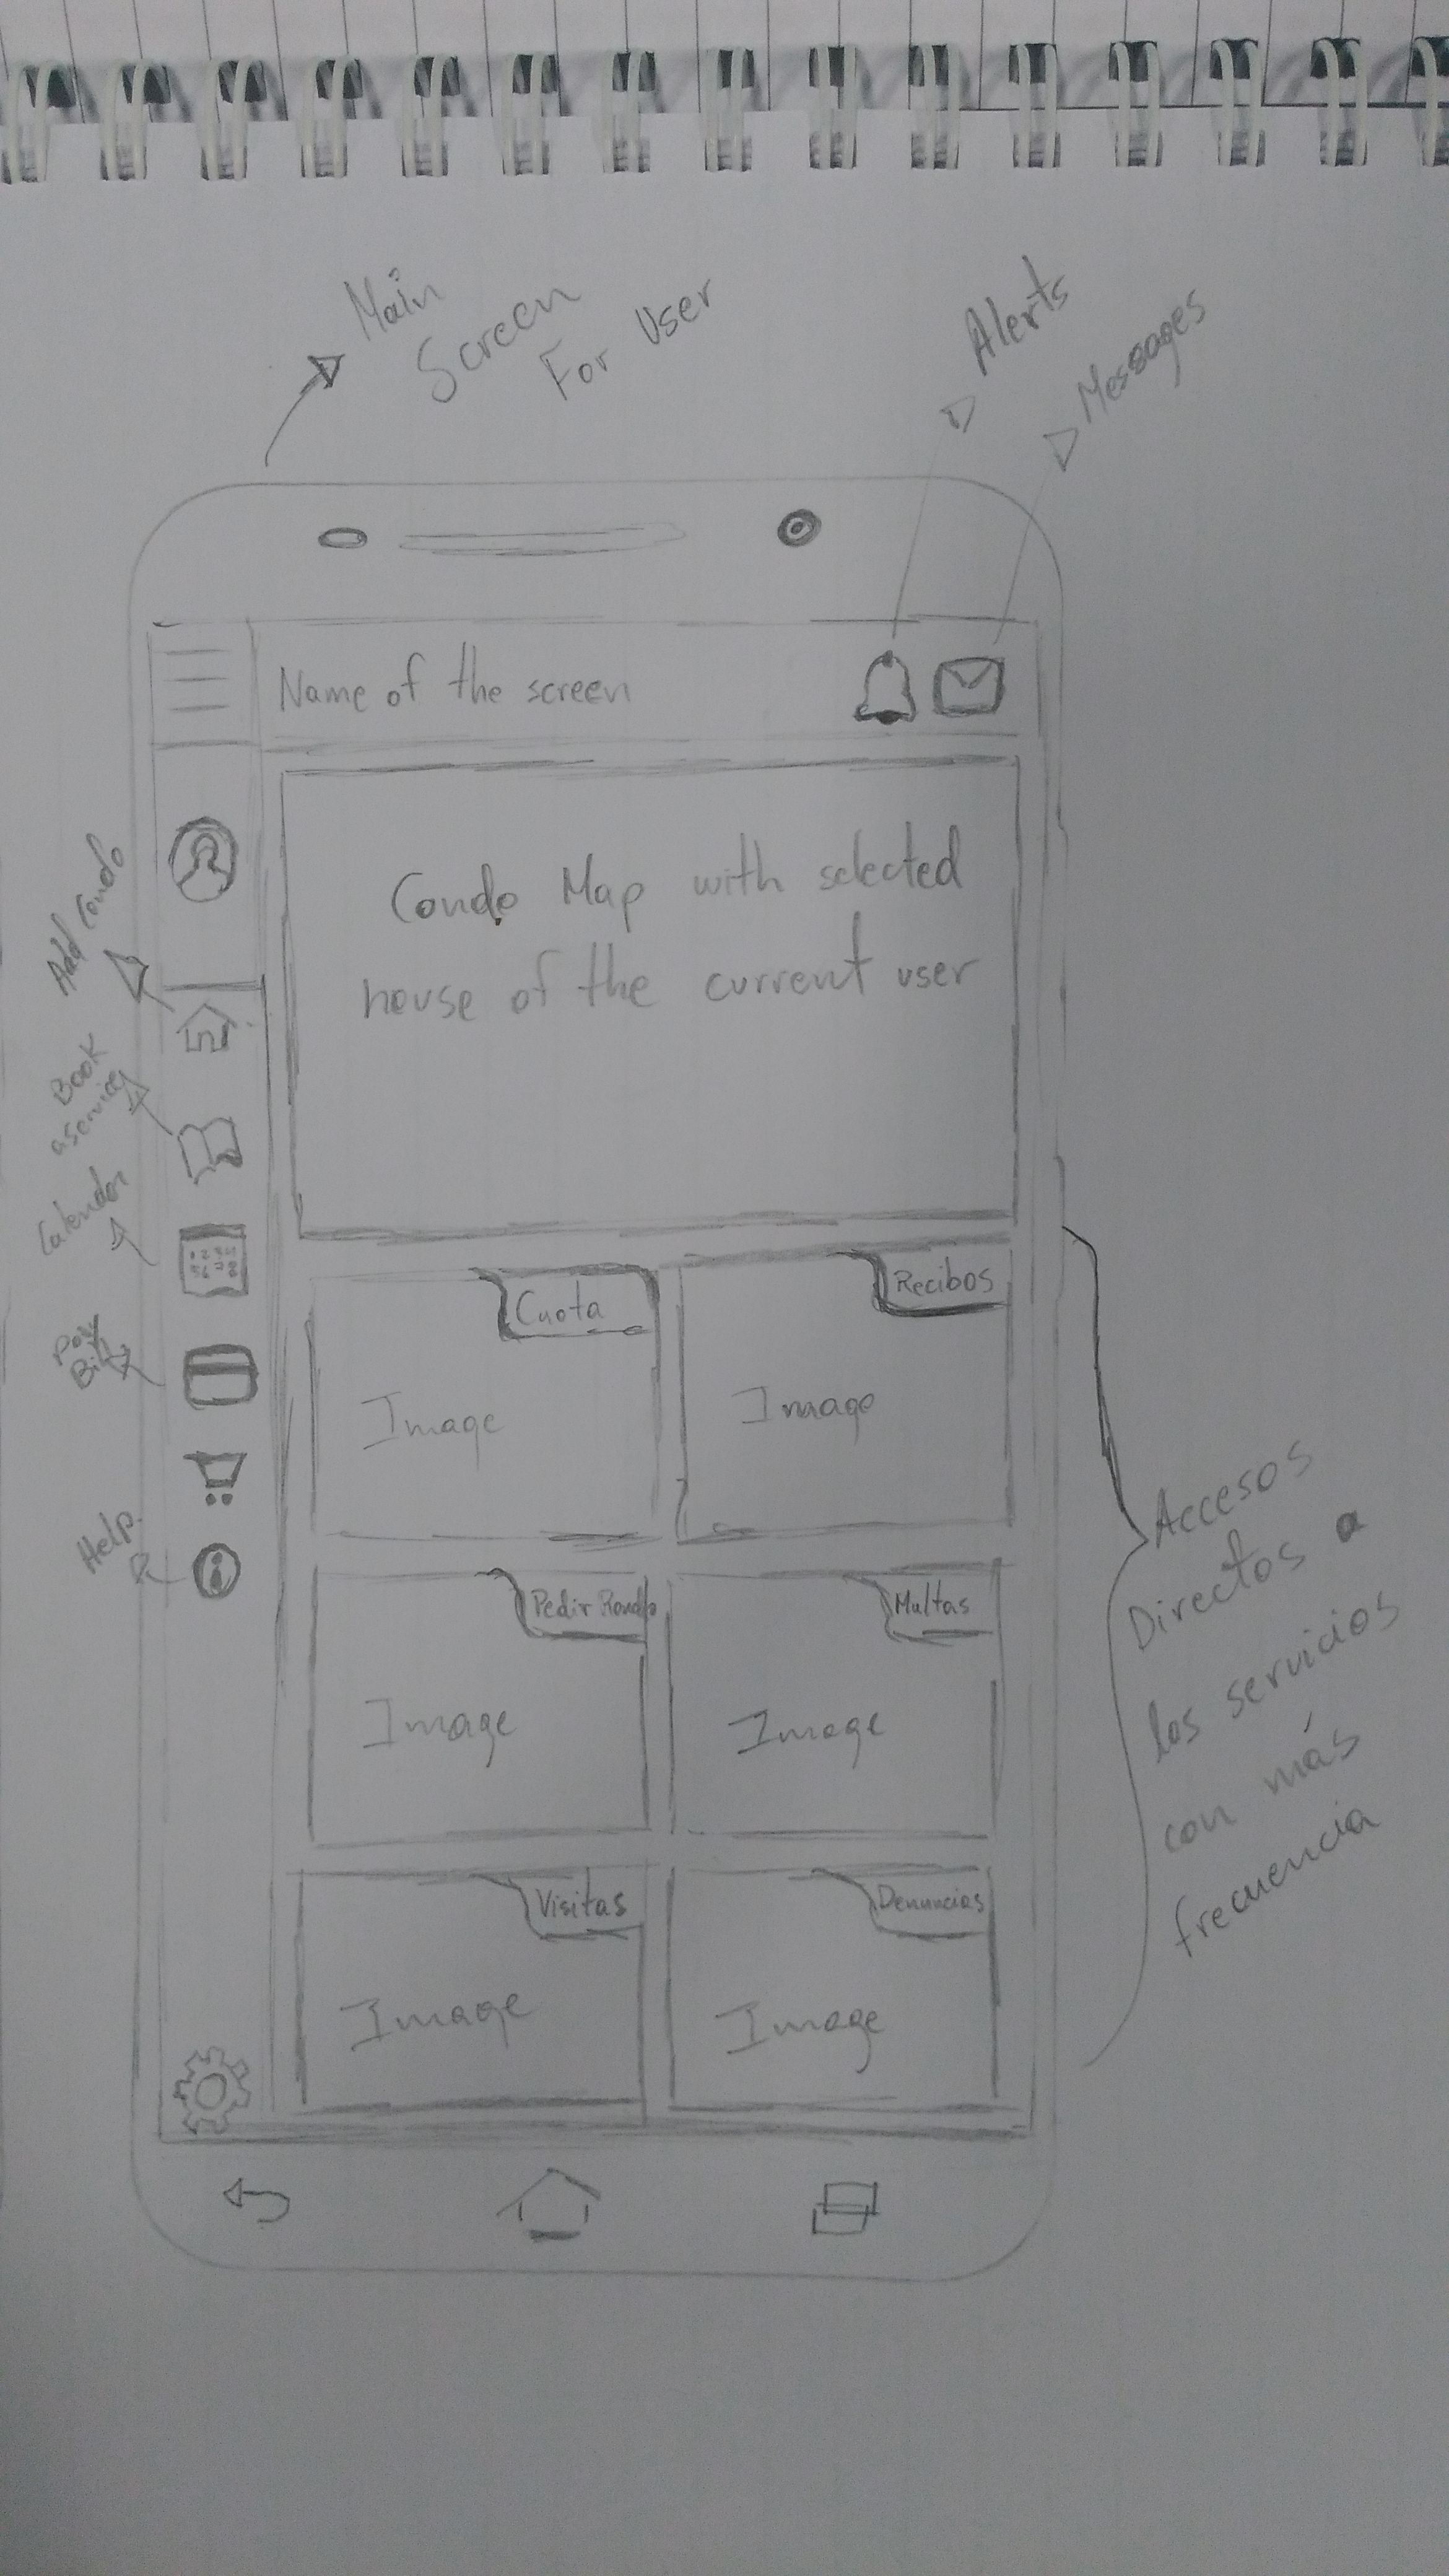 Main
Screen
For User
Alerts
Messages
Name of the screen
Condo Map with selected
house of the current user
Add Condo
Book
a service
Calendar
Pay
Bill
Help
Cuota
Image
Recibos
Image
Pedir Ronda
Image
Multas
Image
Visitas
Image
Denuncias
Image
Accesos
Directos a
los servicios
con más
frecuencia